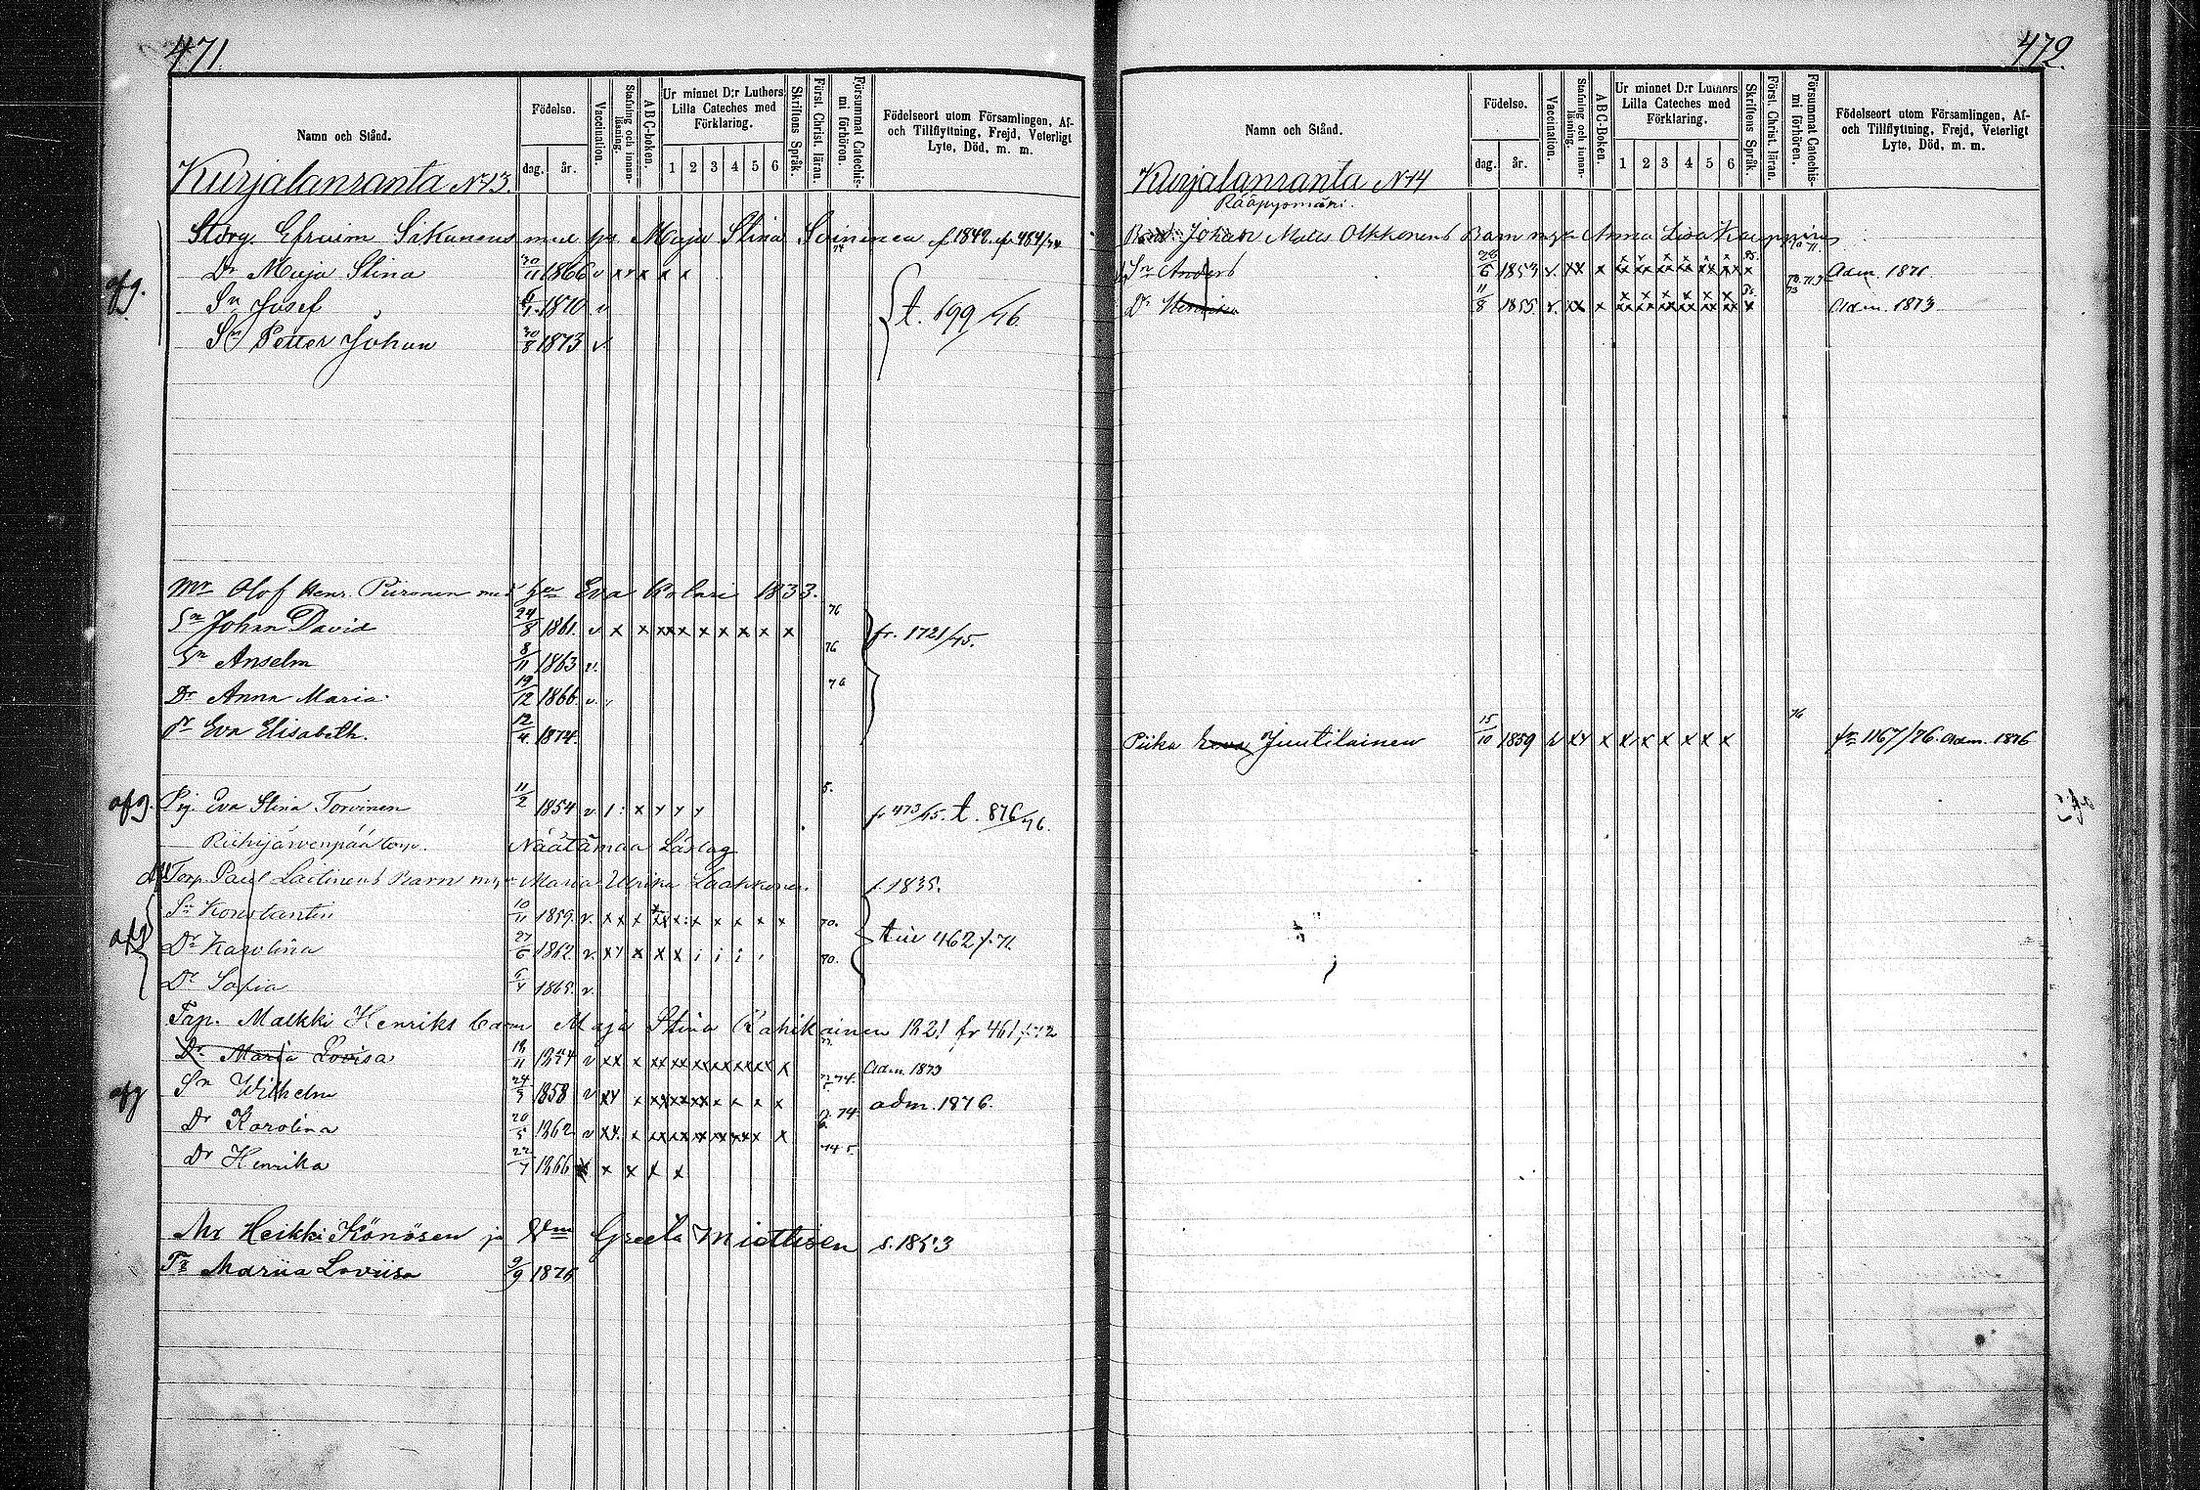 471.
Namn och Stånd.
Födelse.
dag. år.
Vaccination.
Stafning och innan-läsning.
ABC-boken.
Ur minnet D:r Luthers Lilla Cateches med Förklaring.
1 2 3 4 5 6
Skriftens Språk.
Först. Christ. läran.
Försummat Catechis-mi förhören.
Födelseort utom Församlingen, Af- och Tillflyttning, Frejd, Veterligt Lyte, Död, m. m.
Kurjalanranta N:13.
Efraim Sikanens med Maja Stina Soininen f. 1842. 484/74
afg. Dr Maja Stina 30/11 1866 v x x x x x
Sn Josef 1870 v t. 699/76
Sn Petter Johan 30/8 1873 v.
Mr Olof Henr. Piironen med Hu Eva Kolari 1833.
Sn Johan David 24/8 1861. v x x xx x x x x x x 76 fr. 1721/75.
Sn Anselm 8/11 1863 v. 76
Dr Anna Maria 19/12 1866. v. 76
Dr Eva Elisabeth. 12/4 1874.
afg. Pig. Eva Stina Torvinen 11/2 1854 v 5. fr 473/75. t. 876/76.
Riihijärvenpää torp. Näätämaa
Torp. Paul Laitinens Barn Maria Ulrika Laakkonen f. 1835.
Sn Konstantin 10/11 1859. v. x x x xx x: x x x x x 70.
afg Dr Karolina 27/6 1862. v. x x x x 70. 462/71.
Dr Sofia 1865. v.
Malkki Henriks barn Maja Stina Rahikainen 1821 fr 461/72
Dr Maria Lovisa 1854 v xx x xx xx xx xx xx x Adm. 1873
afg Sn Wilhelm 24/3 1858 v xx x adm. 1876.
Dr Karolina 20/5 1862 v xx. x 74
Dr Henrika 22/7 1866 x x x x 74 5.
Mr Heikki Könösen ja Vm Greeta Miettisen s. 1853
Tr Mariia Loviisa 9/9 1876
472.
Namn och Stånd.
Födelse.
dag. år.
Vaccination.
Stafning och innan-läsning.
ABC-Boken.
Ur minnet D:r Luthers Lilla Cateches med Förklaring.
1 2 3 4 5 6
Skriftens Språk.
Först. Christ. läran.
Försummat Catechis-mi förhören.
Födelseort utom Församlingen, Af- och Tillflyttning, Frejd, Veterligt Lyte, Död, m. m.
Kurjalanranta N:14
Rääpysmäki.
Johan Mats Olkkonens Barn Anna Lisa Kauppinen
Sn Anders 28/6 1853 v. xx x Adm. 1871.
Dr Henrika 11/8 1855 v. xx x Adm. 1873.
Piika Eeva Juutilainen 15/10 1859 v xx x x x x x x x 76 fr 1167/76. Adm. 1876